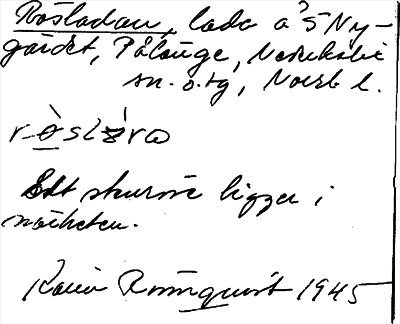 Rosladan, lada å 5 Ny-
gärdet, Pålänge, Nederkalix
sn. o. tg, Norrb l.
Ett skurne ligger i
närheten.
Karin Rönnquist 1945